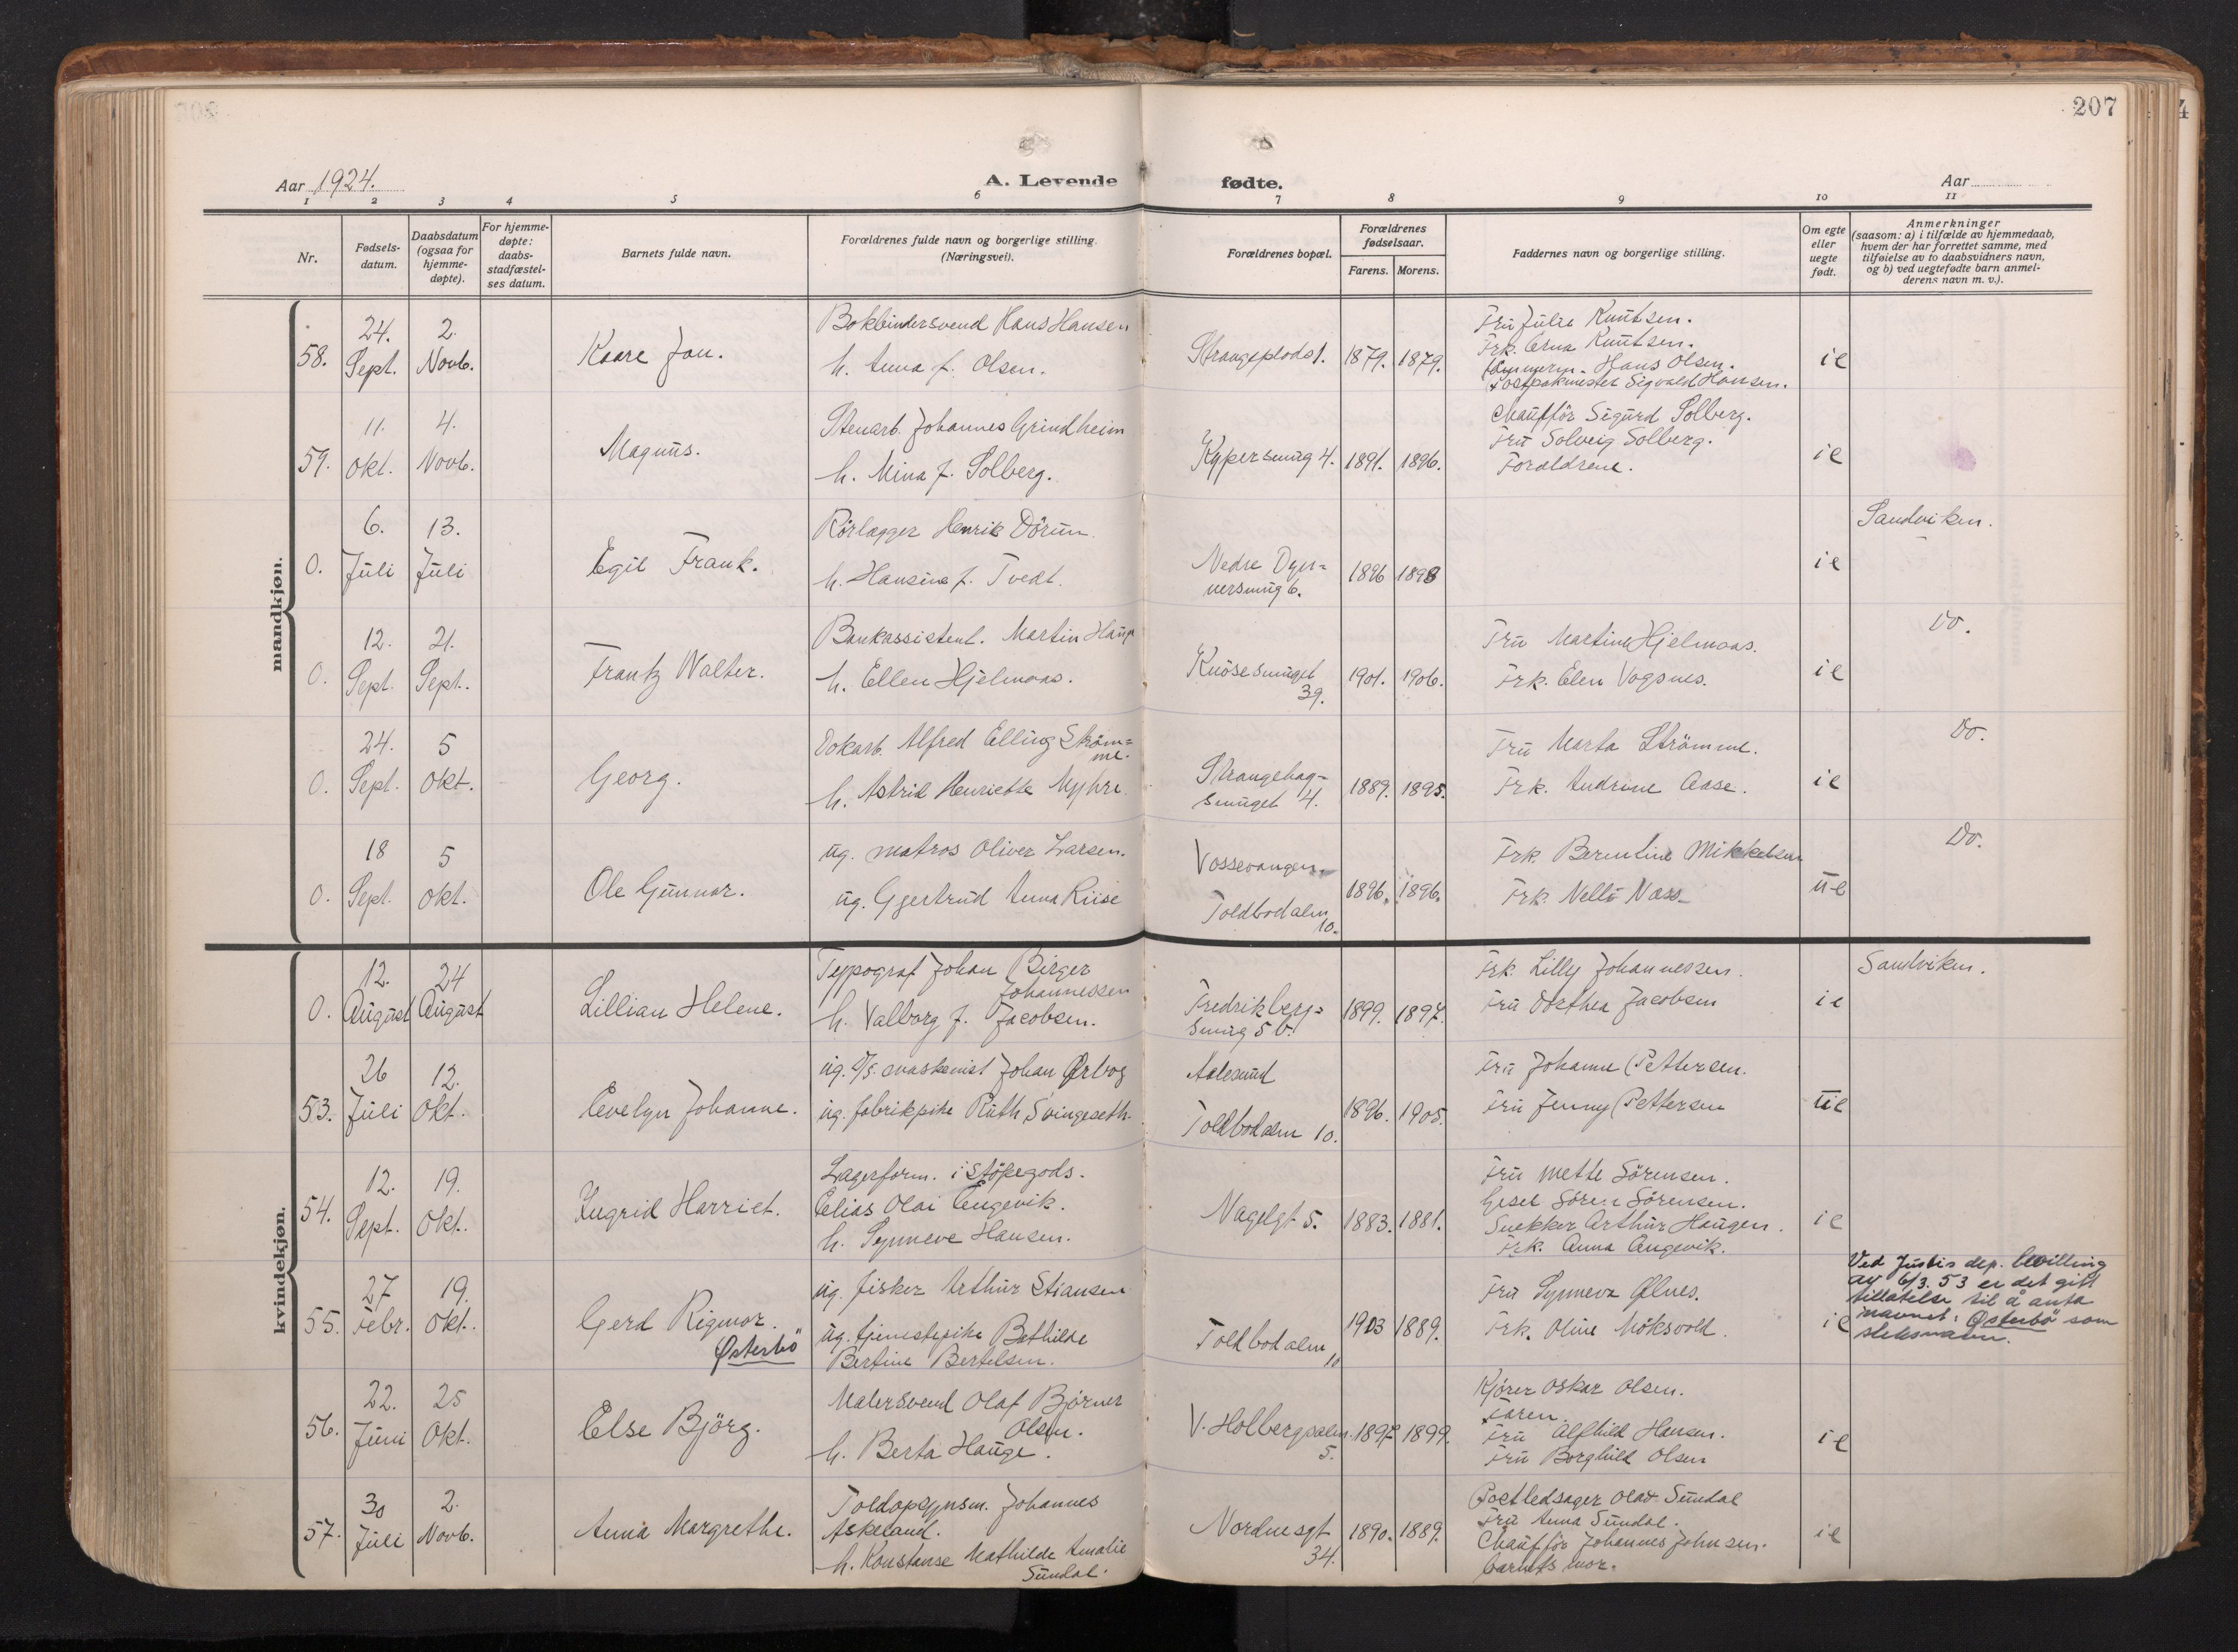 207
Aar 1924.
A. Levende fødte.
Aar
1 2 3 4 5 6 7 8 9 10 11
Nr.
Fødsels-
datum.
Daabsdatum
(ogsaa for
hjemme-
døpte).
For hjemme-
døpte:
daabs-
stadfæstel-
ses datum.
Barnets fulde navn.
Forældrenes fulde navn og borgerlige stilling.
(Næringsvei).
Forældrenes bopæl.
Forældrenes
fødselsaar.
Farens. Morens.
Faddernes navn og borgerlige stilling.
Om egte
eller
uegte
født.
Anmerkninger
(saasom: a) i tilfælde av hjemmedaab,
hvem der har forrettet samme, med
tilføielse av to daabsvidners navn,
og b) ved uegtefødte barn anmel-
derens navn m. v.).
mandkjøn.
58.
24.
Sept.
2.
Novb.
Kaare Jan.
Bokbindersvend Hans Hansen
h. Anna f. Olsen.
Strangeplads 1.
1879. 1879.
Fru Julie Knutsen.
Frk. Erna Knutsen.
Hans Olsen.
Postpakmester Sigvald Hansen.
ie
59.
11.
Okt.
4.
Novb.
Magnus.
Stenarb. Johannes Grindheim
h. Mina f. Solberg.
Kypersmug 4.
1891. 1896.
Chaufför Sigurd Solberg.
Fru Solveig Solberg.
Foraldrene.
ie
0.
6.
Juli
13.
Juli
Egil Frank.
Rörlægger Henrik Dörum
h. Hansine f. Tvedt.
Nedre Dyn=
nersmug 6.
1896 1898
ie
Sandviken.
0.
12.
Sept.
21.
Sept.
Frantz Walter.
Bankassistent. Martin Haug
h. Ellen Hjelmaas.
Knösesmuget
39.
1901. 1906.
Fru Martine Hjelmaas.
Frk. Elen Vogsnes.
ie
Do.
0.
24.
Sept.
5
Okt.
Georg.
Dokarb. Alfred Elling Ström=
me.
h. Astrid Henriette Myhre.
Strangehag=
smuget 4.
1889. 1895.
Fru Marta Strömme.
Frk. Andrine Aase.
ie
Do.
0.
18
Sept.
5
Okt.
Ole Gunnar.
ug. matros Oliver Larsen.
ug. Gjertrud Anna Riise
Vossevangen
Toldbodalm
10.
1896. 1896.
Frk. Berentine Mikkelsen
Frk. Nelli Næss
ue
Do.
kvindekjøn.
0.
12.
August
24
August
Lillian Helene.
Typograf Johan Birger
Johannessen
h. Valborg f. Jacobsen.
Fredrikberg=
smug 5 b.
1899. 1897.
Frk. Lilly Johannessen.
Fru Dorthea Jacobsen
ie
Sandviken.
53.
26
Juli
12.
Okt.
Evelyn Johanne.
ug. D/S. maskinist Johan Ørbog
ug. fabrikpike Ruth Svingeseth.
Aalesund
Toldbodalm 10.
1896. 1905.
Fru Johanne Pettersen.
Fru Jenny Pettersen
ue
54.
12.
Sept.
19.
Okt.
Ingrid Harriet.
Lagerform. i Stöpegods.
Elias Olai Engevik.
h. Synneve Hansen.
Nagelgt 5.
1883. 1881.
Fru Mette Sörensen.
Gesel Sören Sörensen.
Snekker Arthur Haugen.
Frk. Anna Angevik.
ie
55.
27
Febr.
19.
Okt.
Gerd Rigmor.
Østerbö
ug. fisker Arthur Stiansen
ug. tjenestepike Bathilde
Bertine Bertelsen.
Toldbodalm
10
1903 1889.
Fru Synneva Ølnes.
Frk. Oline Möksvold.
ie
Ved Justis dep. bevilling
av 6/3. 53 er det gitt
tillatelse til å anta
navnet: Østerbö som
slektsnavn.
56.
22.
Juni
25
Okt.
Else Björg.
Malersvend Olaf Björner
Olsen.
h. Berta Hauge.
V. Holbergsalm.
5.
1897 1899.
Kjörer Oskar Olsen.
Faren.
Fru Alfhild Hansen.
Fru Borghild Olsen
ie
57.
30
Juli
2.
Novb.
Anna Margrethe.
Toldopsynsm. Johannes
Askeland.
h. Konstanse Mathilde Amalie
Sundal.
Nordnesgt
34.
1890. 1889.
Postledsager Olav Sundal
Fru Anna Sundal.
Chauffför Johannes Johnsen.
barnets mor.
ie